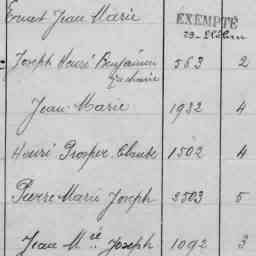 Ernest Jean Marie EXEMPTÉ
Joseph Henri Benjamin 563 2
Zacharie
Jean Marie 1932 4
Henri Prosper Claude 1502 4
Pierre Marie Joseph 3503 5
Jean M.ie Joseph 1092 3